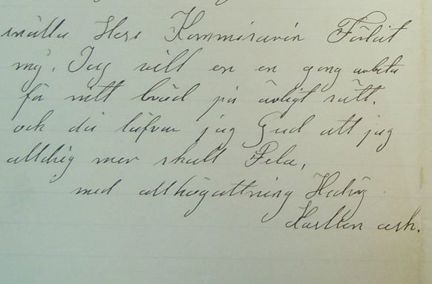 snälla Herr Kommisarin Förlåt
mig. Jag vill en en gang arbeta
för mitt bröd på ärligt sätt.
och då lofvar jag Gud att jag
alldrig mer skall Fela,
med all högattning Hedvig